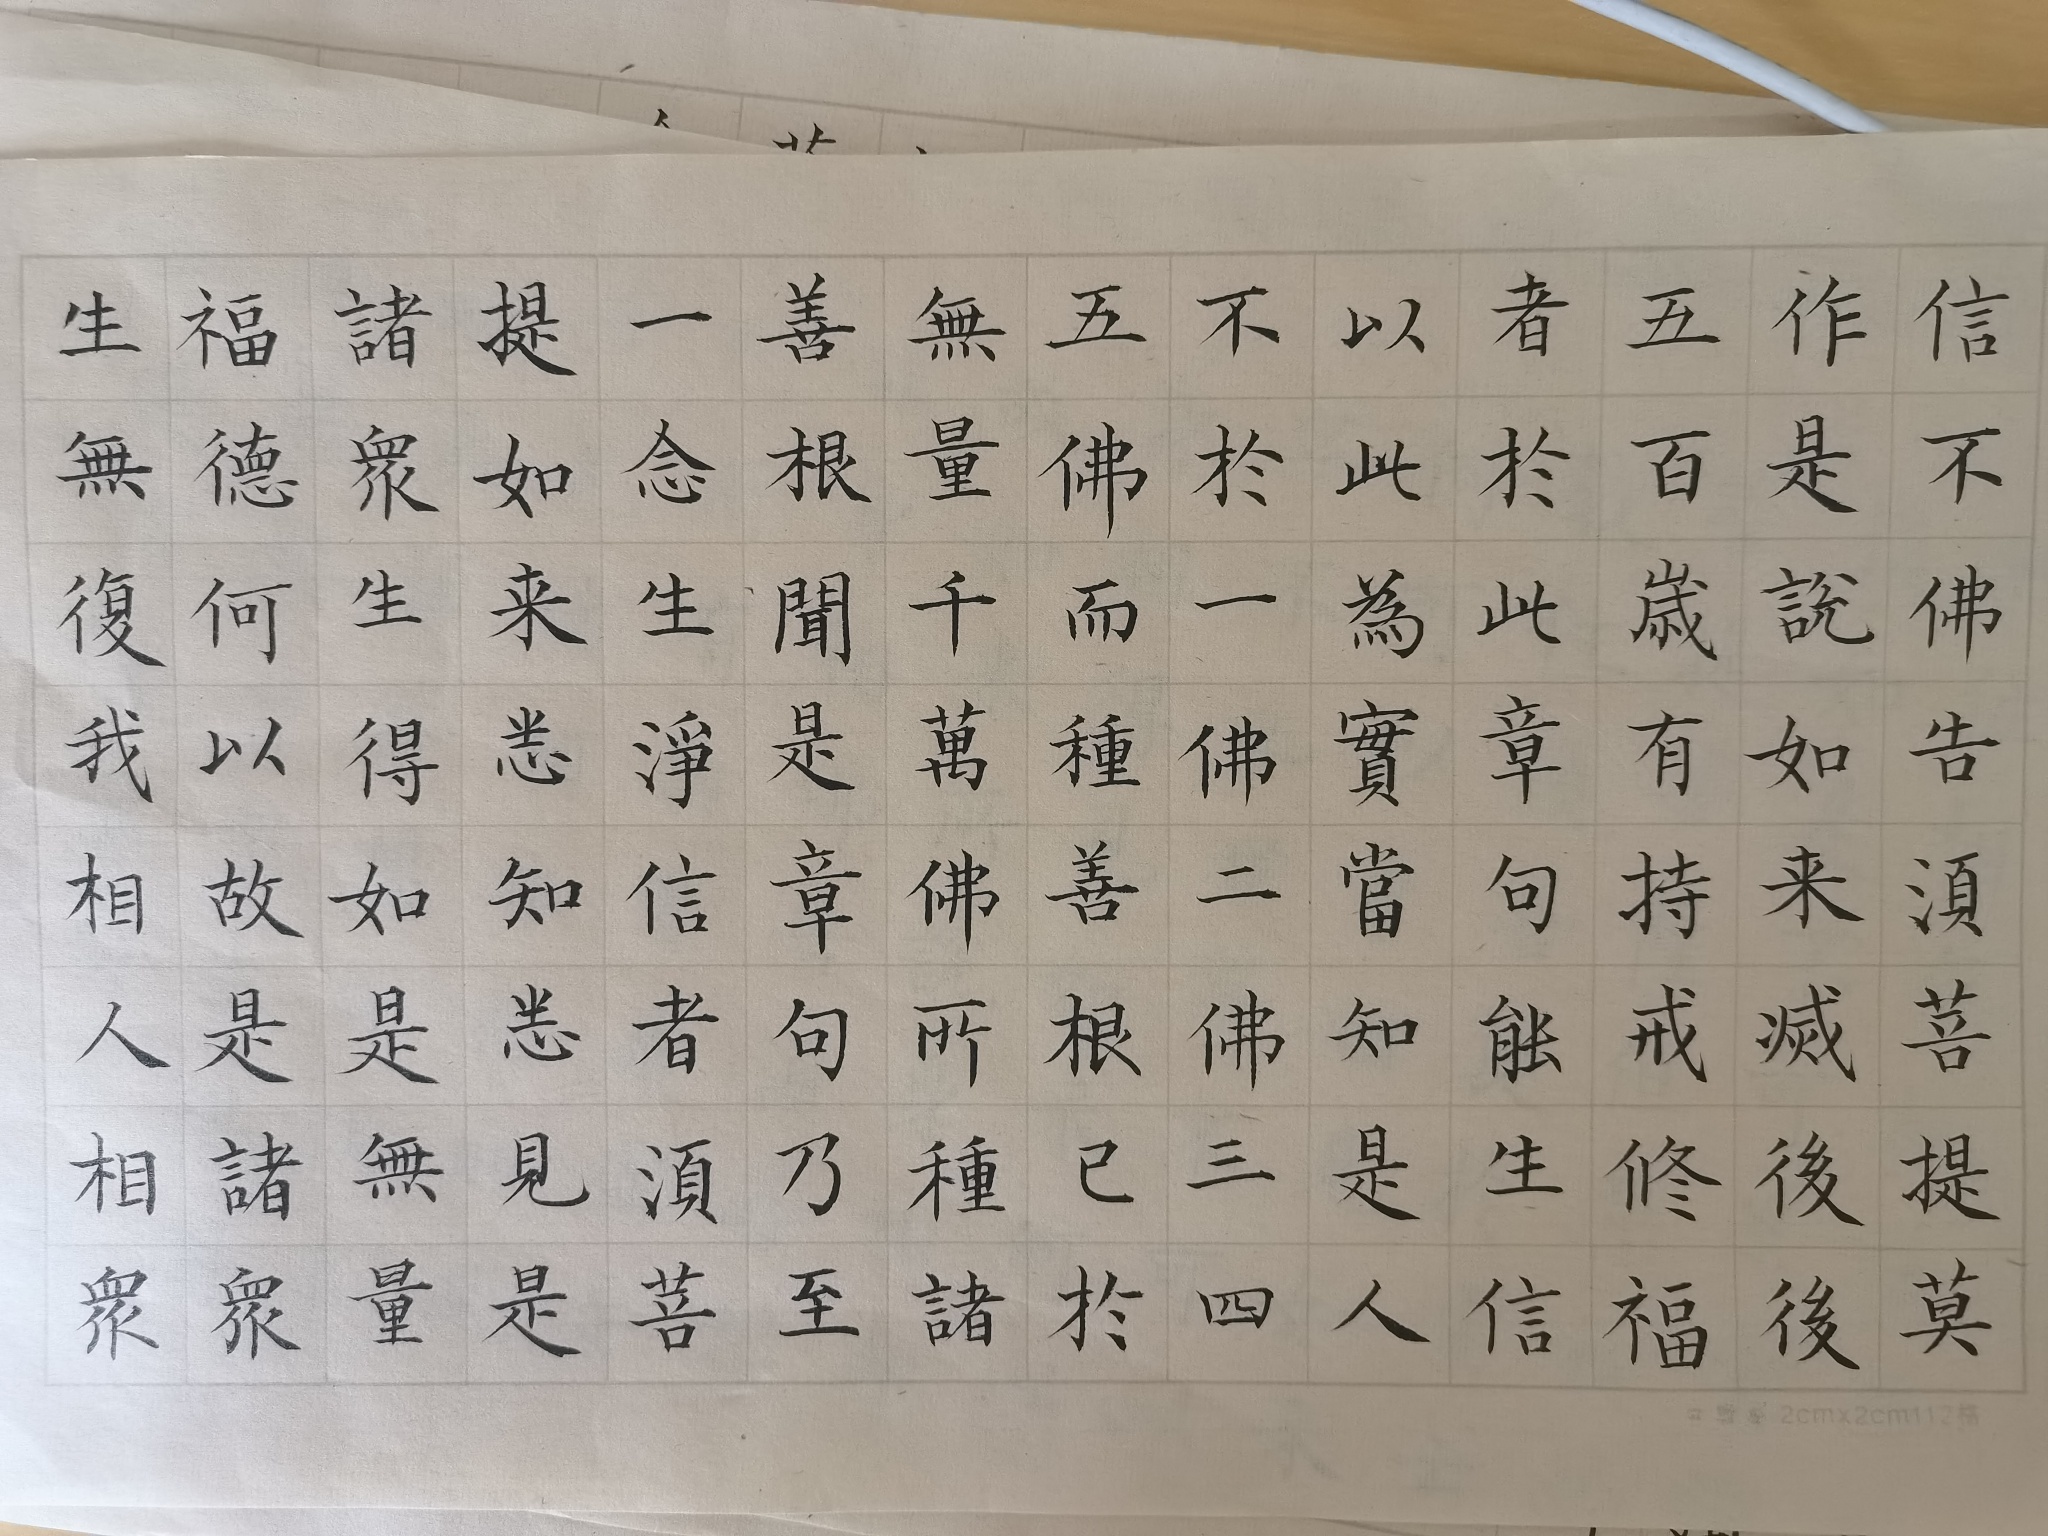 信不佛告須菩提莫
作是說如来滅後後
五百歲有持戒修福
者於此章句能生信
以此為實當知是人
不於一佛二佛三四
五佛而種善根已於
無量千萬佛所種諸
善根聞是章句乃至
一念生淨信者須菩
提如来悉知悉見是
諸衆生得如是無量
福德何以故是諸衆
生無復我相人相衆
2cmx2cm112格